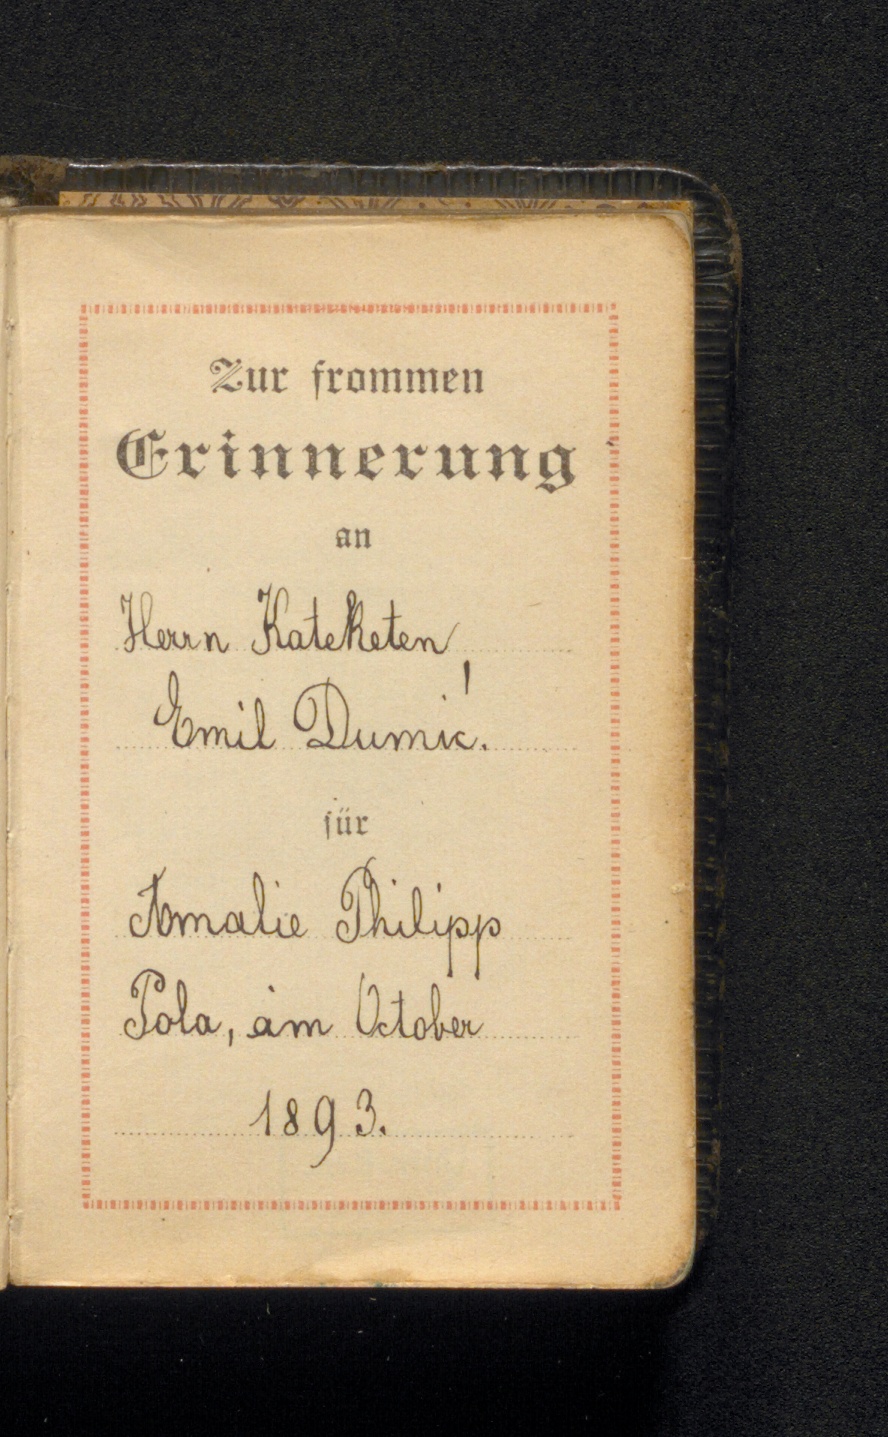 Zur frommen
Erinnerung
an
Herrn Kateketen
Emil Dumić.
für
Amalie Philipp
Pola, am October
1893.